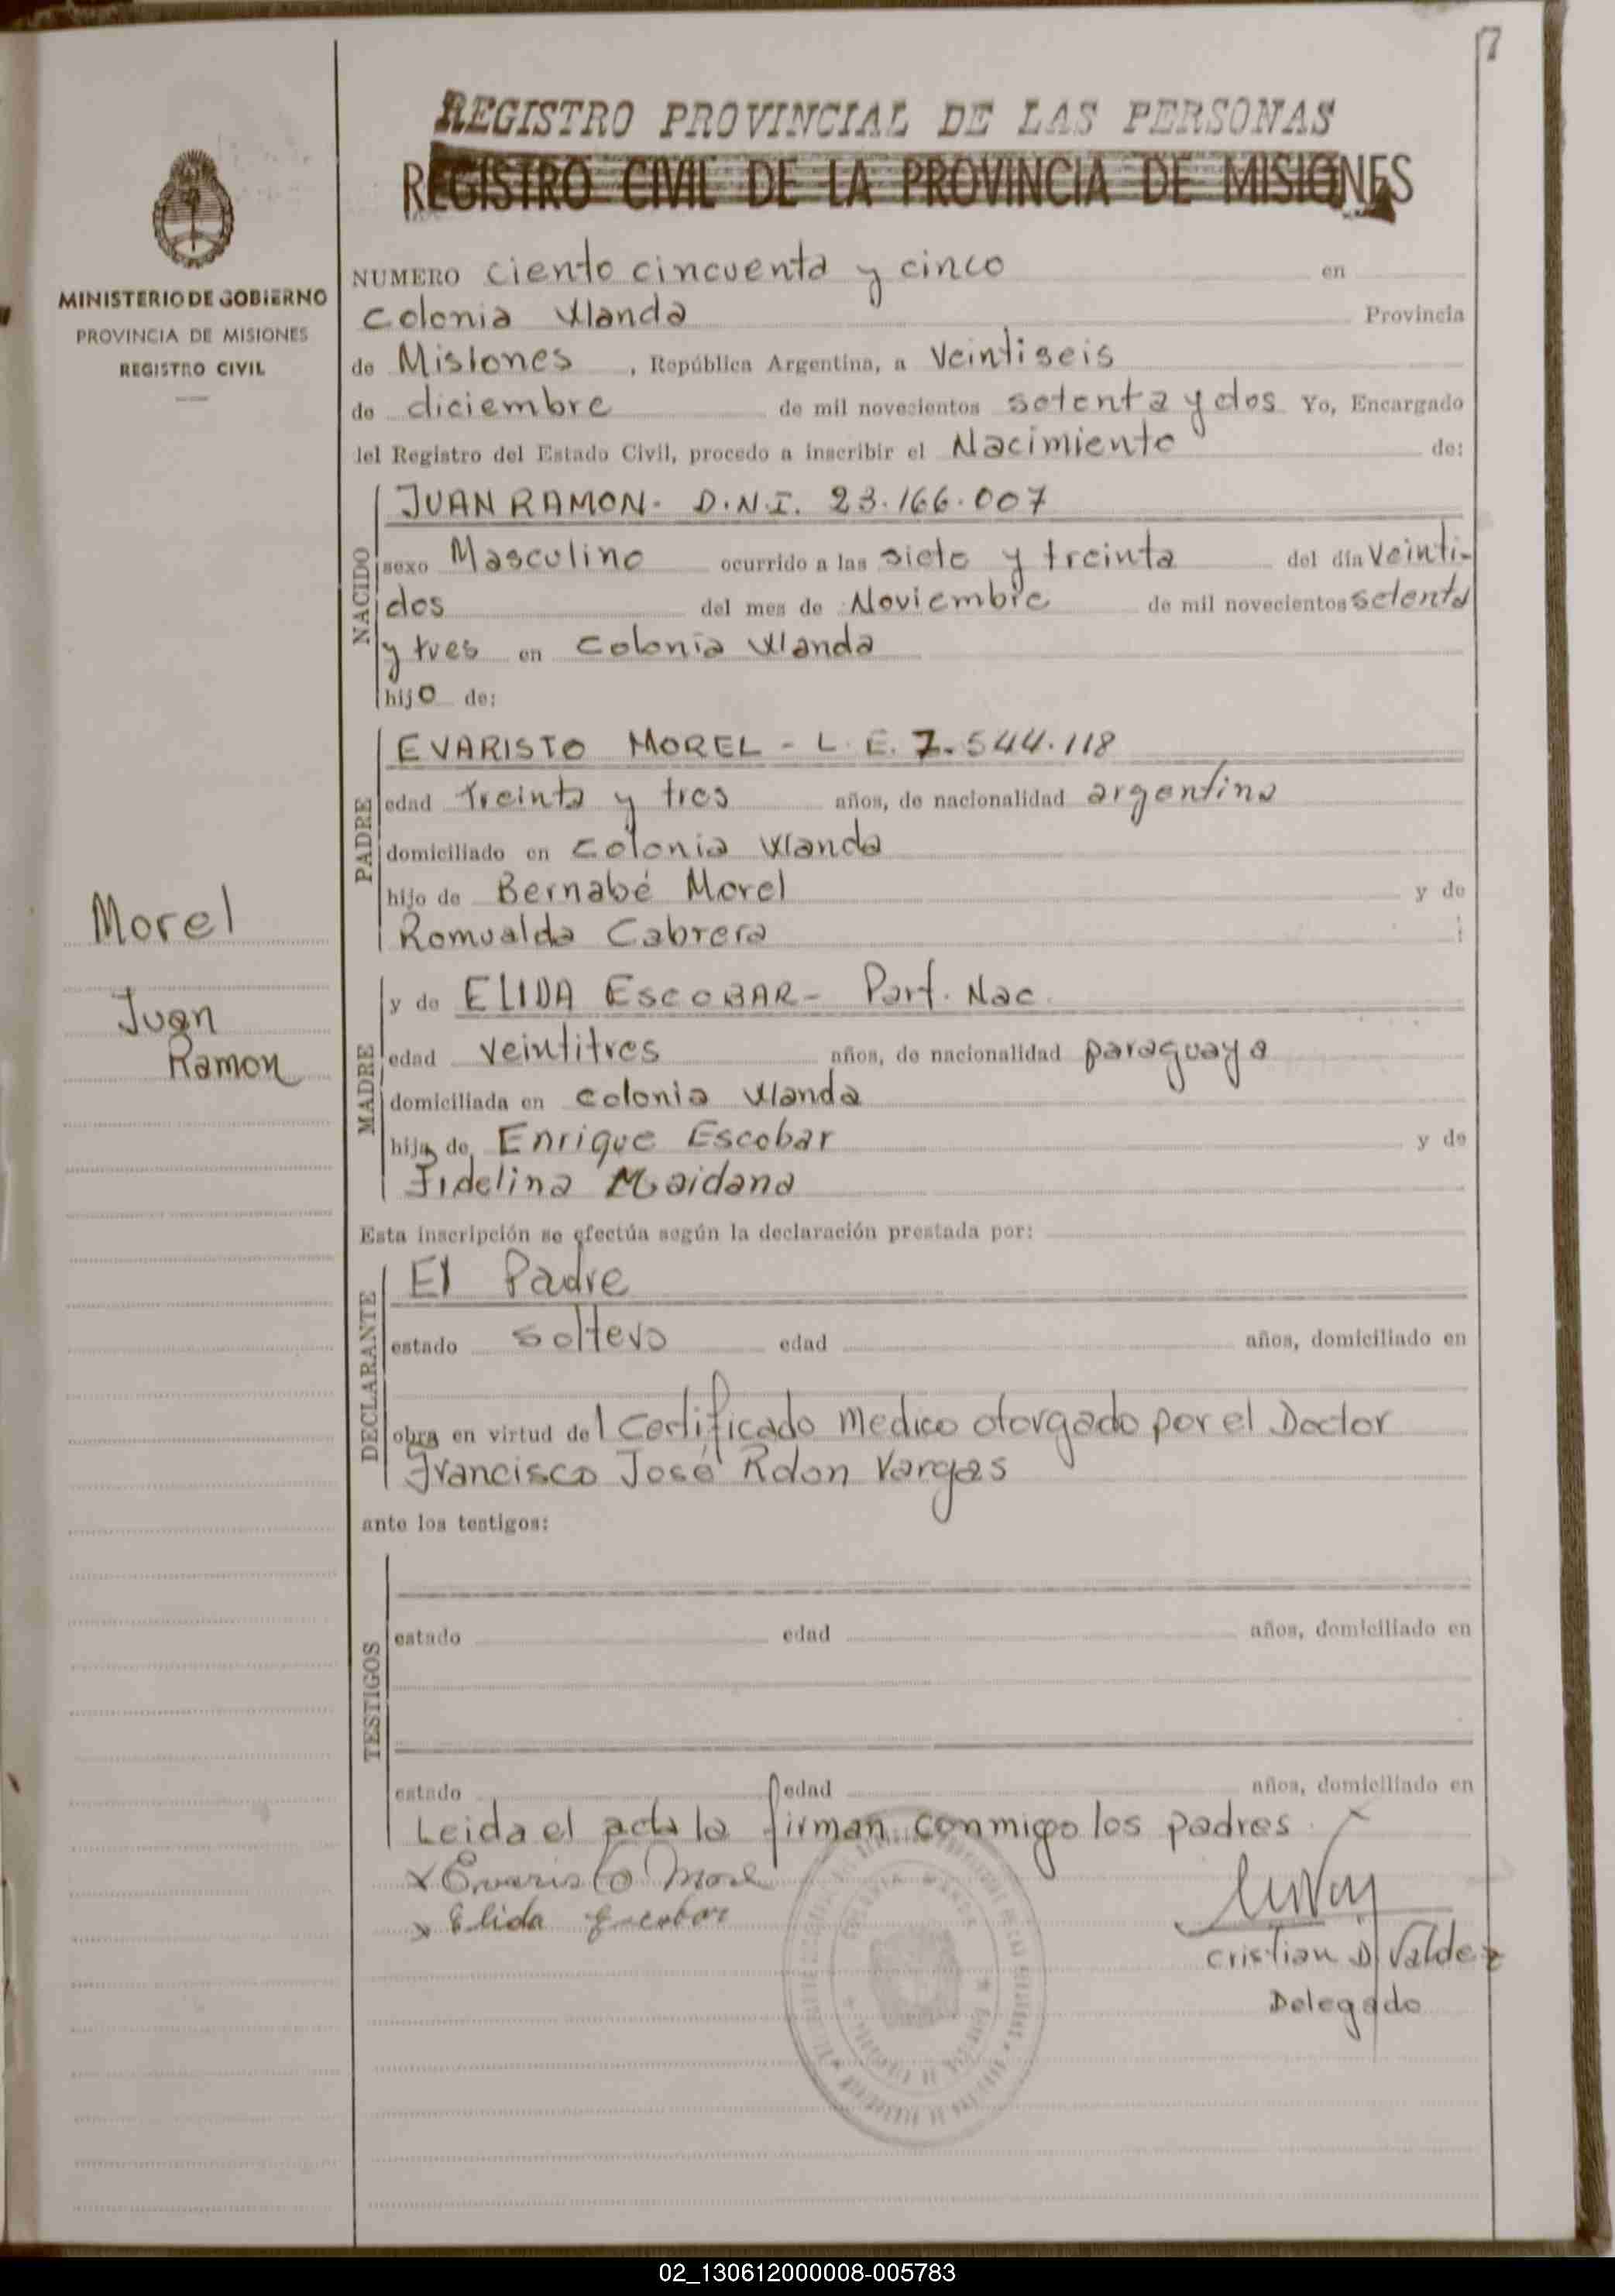 7
REGISTRO PROVINCIAL DE LAS PERSONAS
REGISTRO CIVIL DE LA PROVINCIA DE MISIONES
MINISTERIO DE GOBIERNO
PROVINCIA DE MISIONES
REGISTRO CIVIL
NUMERO ciento cincuenta y cinco en
Colonia Wanda Provincia
de Misiones, República Argentina, a Veintiseis
de diciembre de mil novecientos setenta y dos Yo, Encargado
del Registro del Estado Civil, procedo a inscribir el Nacimiento de:
NACIDO
JUAN RAMON- D.N.I. 23.166.007
sexo Masculino ocurrido a las siete y treinta del día Veinti-
dos del mes de Noviembre de mil novecientos setenta
y tres en Colonia Wanda
hijo de:
PADRE
EVARISTO MOREL - L.E. 7.544.118
edad treinta y tres años, de nacionalidad argentina
domiciliado en Colonia Wanda
hijo de Bernabé Morel y de
Romualda Cabrera
Morel
Juan
Ramon
MADRE
y de ELIDA ESCOBAR- Part. Nac.
edad veintitres años, de nacionalidad paraguaya
domiciliada en Colonia Wanda
hija de Enrique Escobar y de
Fidelina Maidana
Esta inscripción se efectúa según la declaración prestada por:
DECLARANTE
El Padre
estado soltero edad años, domiciliado en
obra en virtud del Certificado Medico otorgado por el Doctor
Francisco José Rolon Vargas
ante los testigos:
TESTIGOS
estado edad años, domiciliado en
estado edad años, domiciliado en
Leida el acta la firman conmigo los padres
x Evaristo Morel
x Elida Escobar
Cristian D Valdez
Delegado
02_130612000008-005783